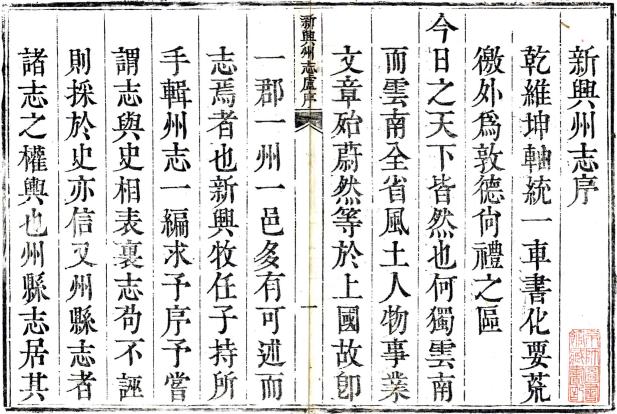 新興州志序
乾維坤軸統一車書化要荒
徼外爲敦德尙禮之區
今日之天下皆然也何獨雲南
而雲南全省風土人物事業
文章殆蔚然等於上國故卽
新興州志盧序
一
一郡一州一邑多有可述而
志焉者也新興牧任子持所
手輯州志一編求予序予嘗
謂志與史相表裏志茍不誣
則採於史亦信又州縣志者
諸志之權輿也州縣志居其